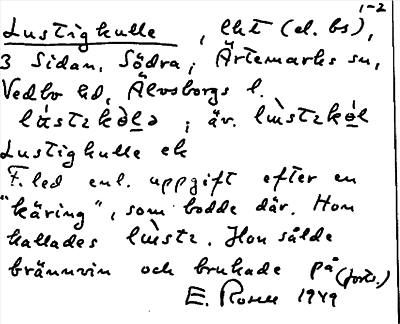 1-2
Lustigkulle, lht (el. bs),
3 Sidan, Södra, Ärtemarks sn,
Vedbo hd, Älvsborgs l.
äv.
Lustigkulle ek
F.led enl. uppgift efter en
"käring", som bodde där. Hon
kallades Hon sålde
brännvin och brukade på (forts.)
E. Rosen 1949